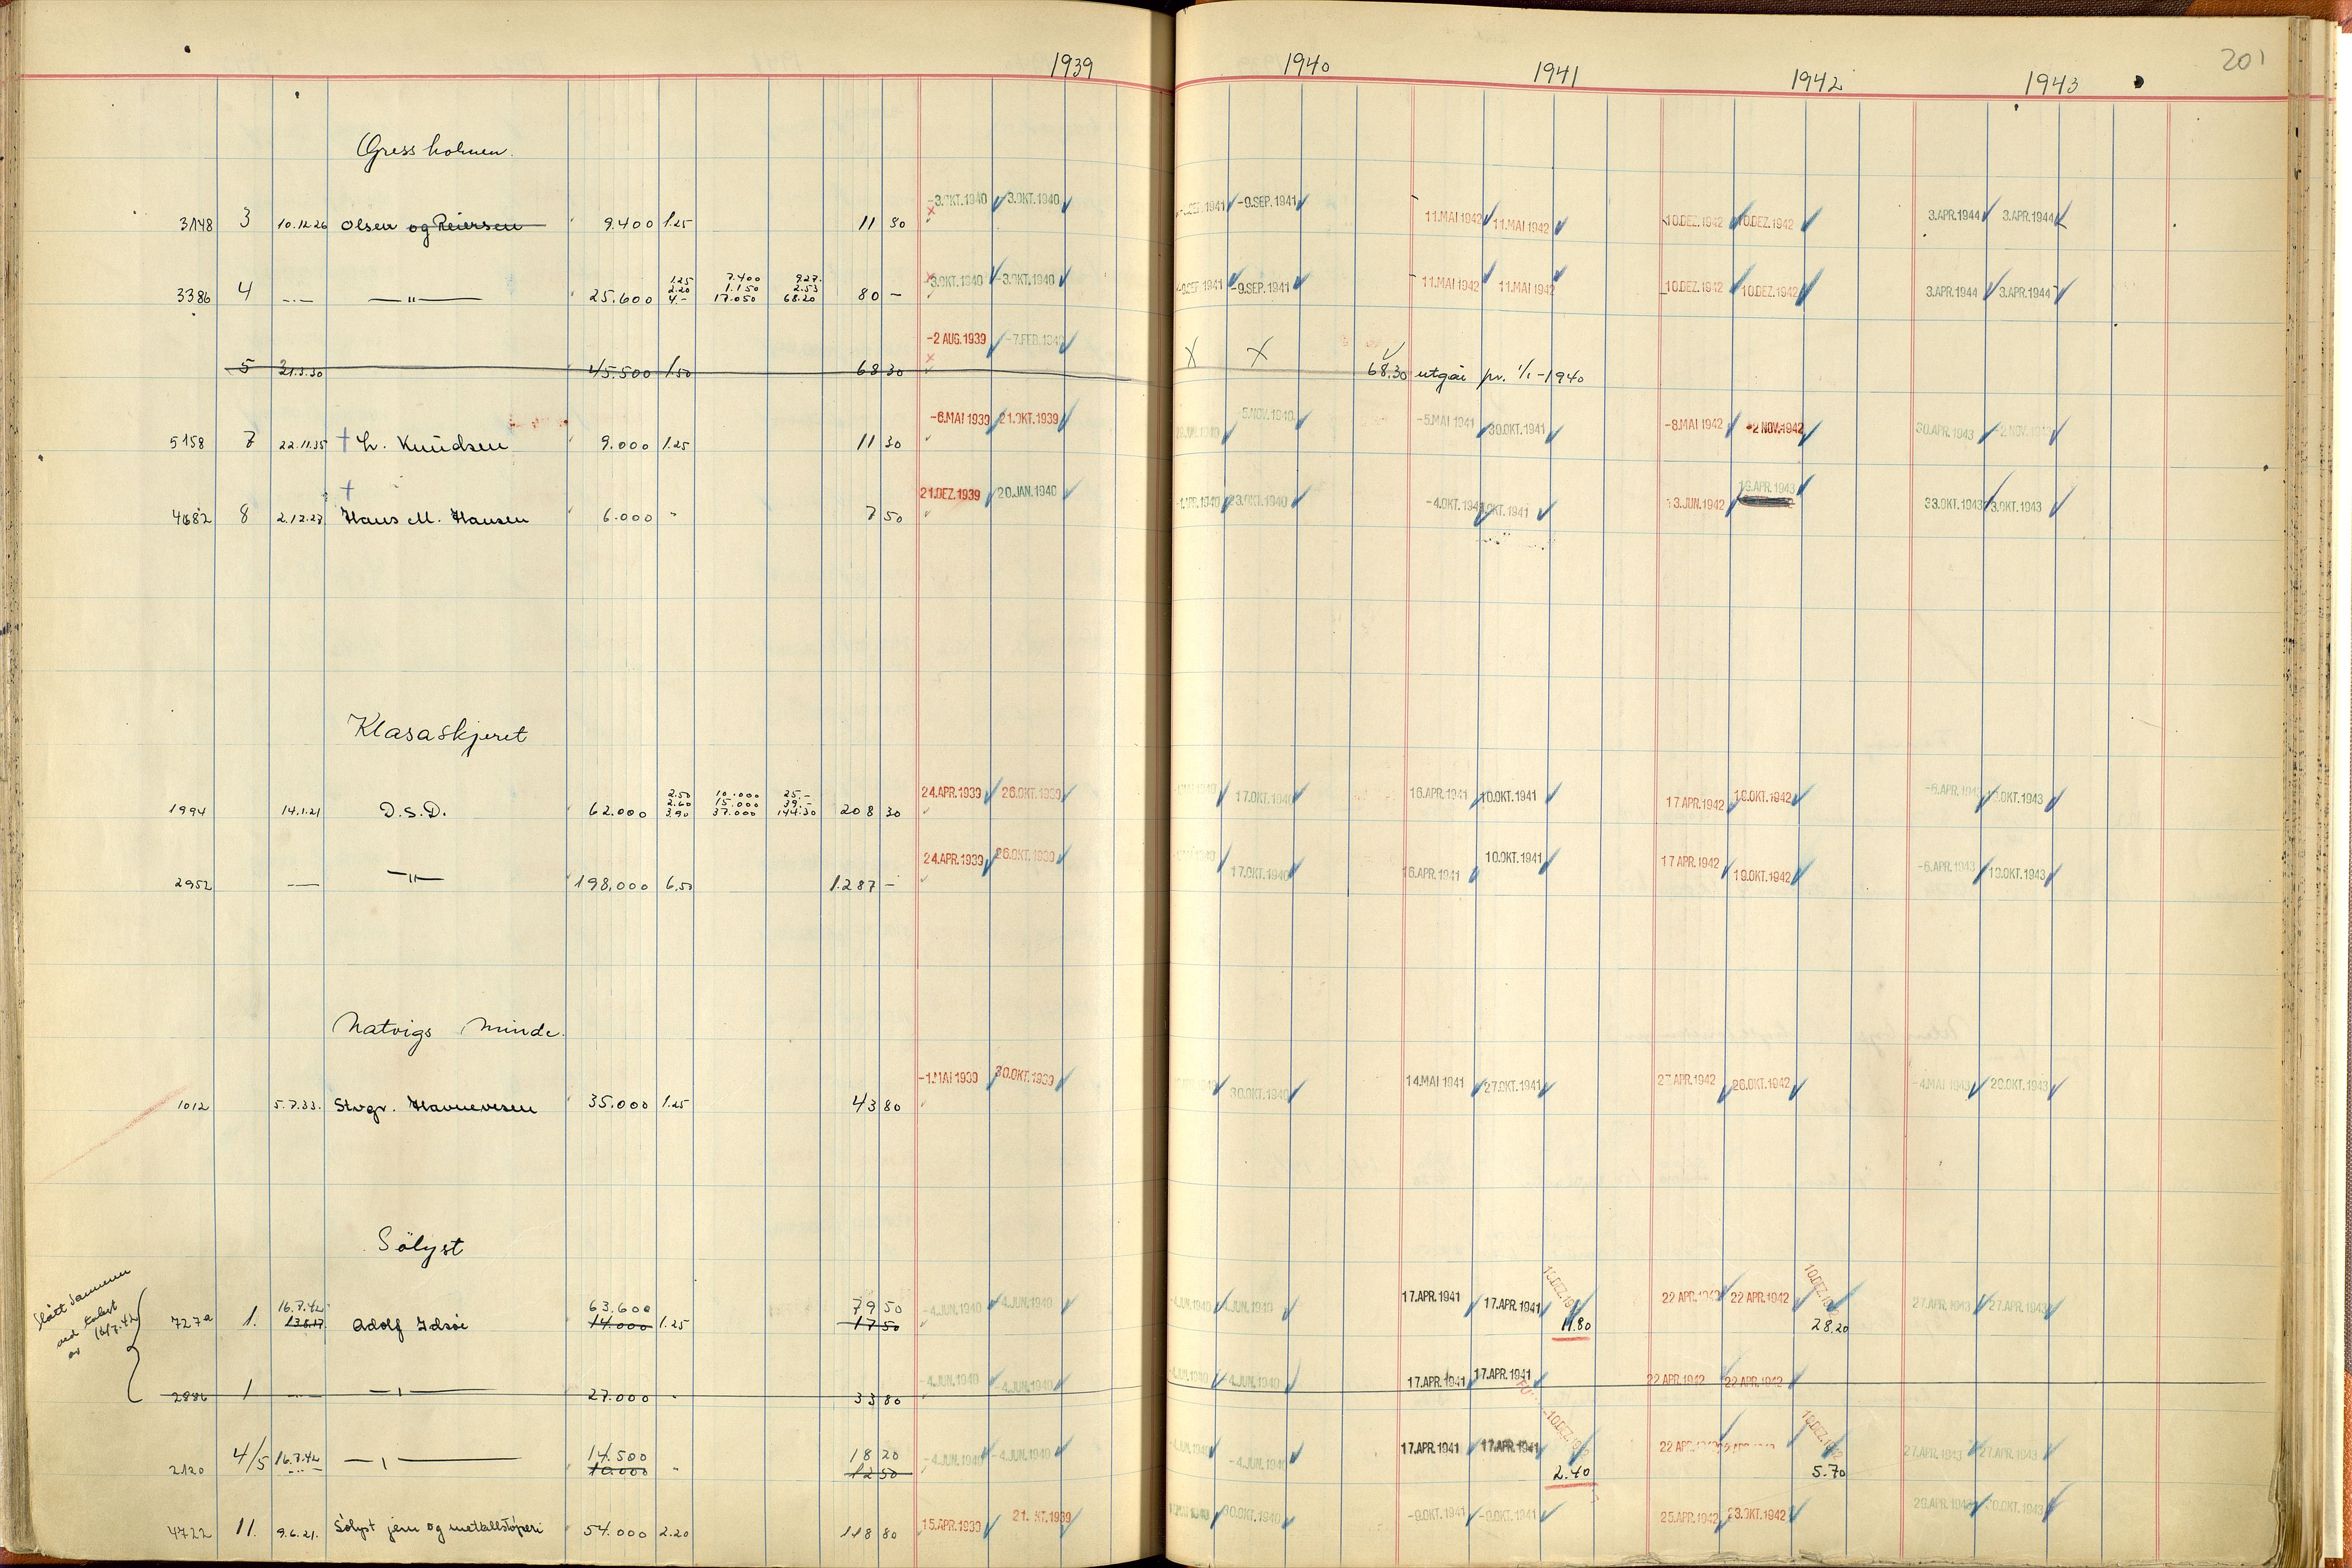 1939 1940 1941 1942 1943 201
Gressholmen.
-3.OKT.1940 3.OKT.1940 -9.SEP.1941 -9.SEP.1941 11.MAI 1942 11.MAI 1942 10.DEZ.1942 10.DEZ.1942 3.APR.1944 3.APR.1944
3148 3 10.12.26 Olsen og Reiersen 9.400 1.25 11 80
-3.OKT.1940 -3.OKT.1940 -9.SEP.1941 -9.SEP.1941 11.MAI 1942 11.MAI 1942 10.DEZ.1942 10.DEZ.1942 3.APR.1944 3.APR.1944
1.25 7.400 9.27
2.20 1.150 2.53
3386 4 -.- —"— 25.600 4.- 17.050 68.20 80 -
-2 AUG.1939 -7.FEB.1940 X X
5 21.3.30 45.500 1.50 68 30 68.30 utgår pr. 1/1-1940
-6.MAI 1939 21.OKT.1939 -5.NOV.1940 -5.MAI 1941 30.OKT.1941 -8.MAI 1942 -2 NOV.1942 30.APR.1943 -2 NOV.1943
5158 7 22.11.35 † L. Knudsen 9.000 1.25 11 30
†
21.DEZ.1939 20.JAN.1940 -1.APR.1940 23.OKT.1940 -4.OKT.1941 OKT.1941 13.JUN.1942 16.APR.1943 3.OKT.1943 3.OKT.1943
4682 8 2.12.27 Hans M. Hansen 6.000 " 7 50
Klasaskjeret
24.APR.1939 26.OKT.1939 17.OKT.1940 16.APR.1941 10.OKT.1941 17 APR.1942 19.OKT.1942 -6.APR.1943 19.OKT.1943
2.50 10.000 25.-
2.60 15.000 39.-
1994 14.1.21 D.S.D. 62.000 3.90 37.000 144.30 208 30
24.APR.1939 26.OKT.1939 17.OKT.1940 16.APR.1941 10.OKT.1941 17 APR.1942 19.OKT.1942 -6.APR.1943 19.OKT.1943
2952 — —"— 198.000 6.50 1.287 -
Natvigs Minde.
-1.MAI 1939 30.OKT.1939 30.OKT.1940 14.MAI 1941 27.OKT.1941 27.APR.1942 26.OKT.1942 -4.MAI 1943 29.OKT.1943
1012 5.7.33. Stvgr. Havnevesen 35.000 1.25 43 80
Sölyst
Slått sammen
ved takst
av 16/7.42
16.7.42 63.600 79 50 -4.JUN.1940 -4.JUN.1940 -4.JUN.1940 -4.JUN.1940 17.APR.1941 17.APR.1941 10.DEZ.1942 22 APR.1942 22 APR.1942 10.DEZ.1942 27.APR.1943 27.APR.1943
727a 1. 13.8.17 Adolf Idsöe 14.000 1.25 17 50 11.80 28.20
-4.JUN.1940 -4.JUN.1940 -4.JUN.1940 -4.JUN.1940 17.APR.1941 17.APR.1941 22 APR.1942 22 APR.1942
2886 1 — —"— 27.000 " 33 80
4/5 16.7.42 —"— 14.500 18 20 -4.JUN.1940 -4.JUN.1940 -4.JUN.1940 -4.JUN.1940 17.APR.1941 17.APR.1941 10.DEZ.1942 22 APR.1942 10.DEZ.1942 27.APR.1943 27.APR.1943
2120 10.000 " 12 50 2.40 5.70
4722 11. 9.6.21. Sölyst jern og metallstöperi 54.000 2.20 118 80 15.APR.1939 21.OKT.1939 30.OKT.1940 -9.OKT.1941 -9.OKT.1941 25.APR.1942 23.OKT.1942 29.APR.1943 OKT.1943